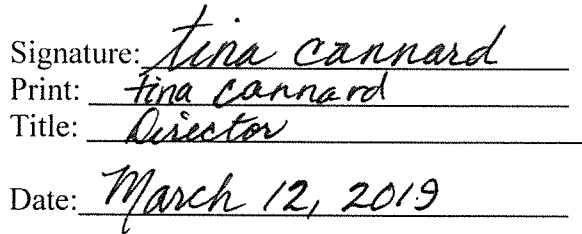 Signature: tina cannard
Print: tina cannard
Title: Director
Date: March 12, 2019